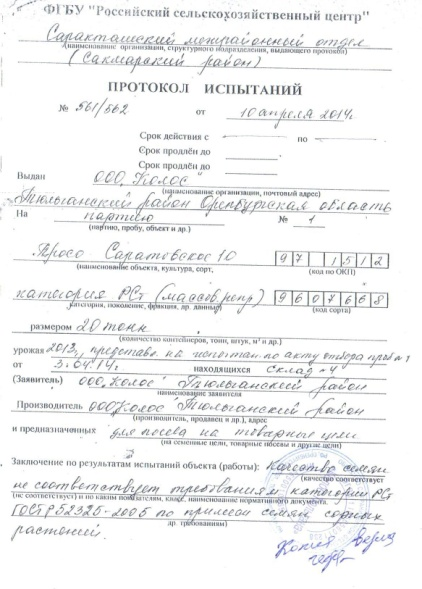 ФГБУ "Российский сельскохозяйственный центр"
Саракташский межрайонный отдел
(наименование организации, структурного подразделения, выдающего протокол)
(Сакмарский район)
ПРОТОКОЛ ИСПЫТАНИЙ
№ 561/562 от 10 апреля 2014г
Срок действия с по
Срок продлён до
Срок продлён до
Выдан ООО "Колос"
(наименование организации, почтовый адрес)
Тюльганский район Оренбургская область
На партию № 1
(партию, пробу, объект и др.)
Просо Саратовское 10 97 1512
(наименование объекта, культура, сорт, (код по ОКП)
категория РСт (массов. репр) 9607668
категория, поколение, фракция, др. данные) (код сорта)
размером 20 тонн
(количество контейнеров, тонн, штук, м³ и др.)
урожая 2013, представл. на испытан. по акту отбора проб № 1
от 3.04.14г. находящихся склад - 4
(Заявитель) ООО "Колос" Тюльганский район
наименование заявителя
Производитель ООО "Колос" Тюльганский район
(производитель, продавец и др.), адрес
и предназначенных для посева на товарные цели
(на семенные цели, товарные посевы и другие цели)
Заключение по результатам испытаний объекта (работы): Качество семян
(качество соответствует
не соответствует требованиям категории РСт
(не соответствует) и по каким показателям, класс, наименование нормативного документа.
ГОСТ Р 52325-2005 по примеси семян сорных
др. требованиям)
растений.
Копия верна